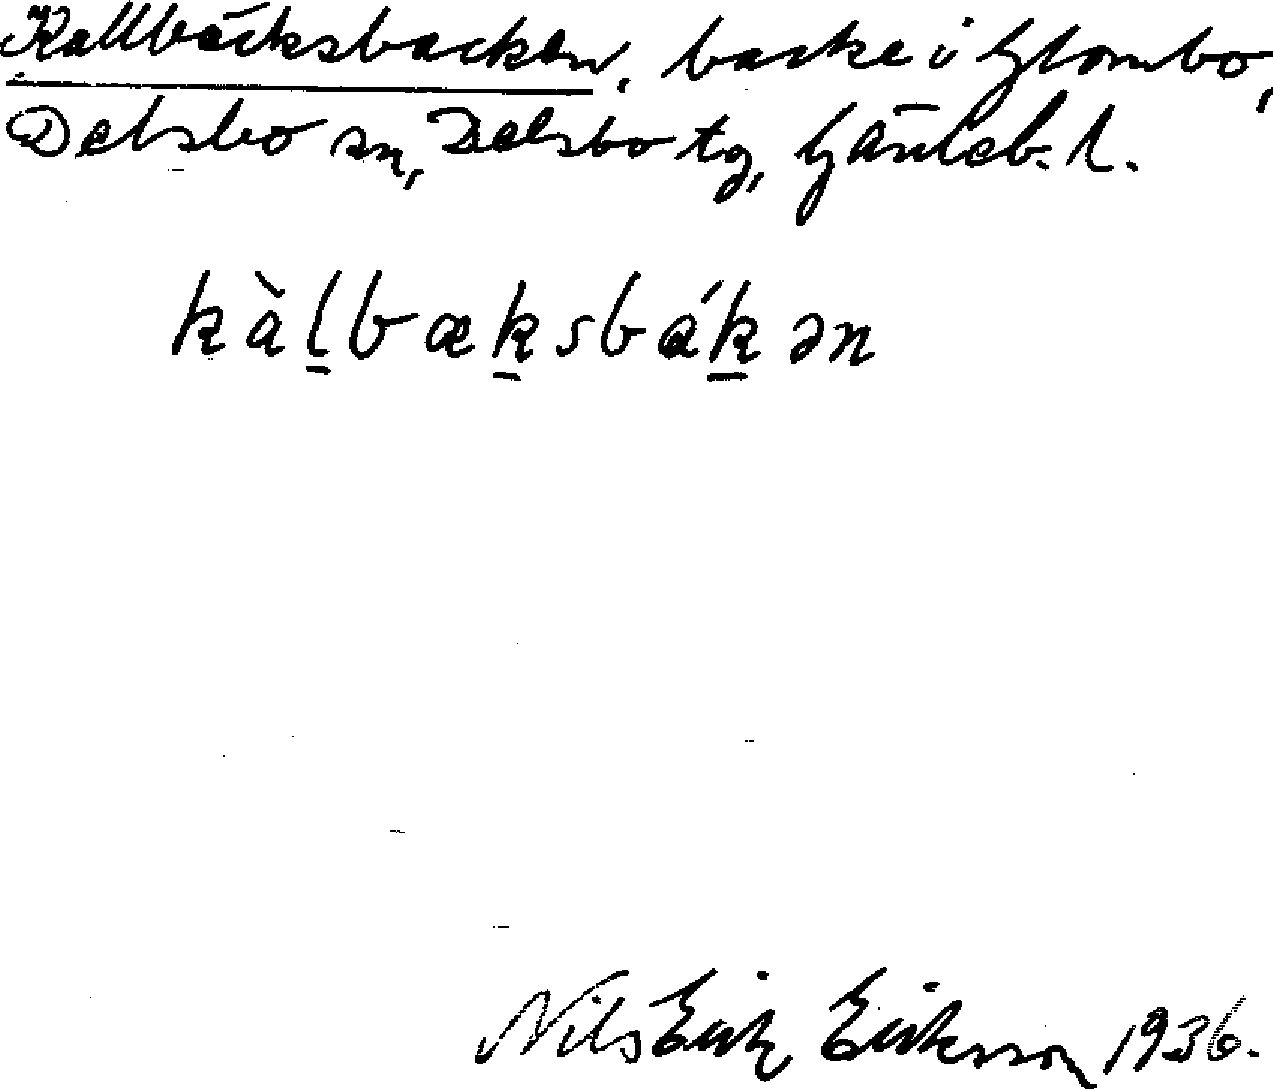 Kallbäcksbacken, backe i Glombo,
Delsbo sn, Delsbo tg, Gävleb. l.
kàḻbæḵsbáḵən
Nils Erik Eriksson 1936.